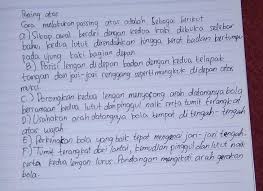 Pasing atas
Cara melakukan passing atas adalah sebagai berikut
a) Sikap awal berdiri dengan kedua kaki dibuka selebar
bahu, kedua lutut direndahkan hingga berat badan bertumpu
pada ujung kaki bagian depan
B) Posisi lengan di depan badan dengan kedua telapak
tangan dan jari-jari renggang seperti mangkuk di depan atas
muka.
C) Dorongkan kedua lengan menyongsong arah datangnya bola
bersamaan kedua lutut dan pinggul naik serta tumit terangkat
D) Usahakan arah datangnya bola tempat di tengah-tengah
atas wajah
E) Perkenaan bola yang baik tepat mengenai jari-jari tengah.
F) Tumit terangkat dari lantai, kemudian pinggul dan lutut naik
serta kedua lengan lurus. Pandangan mengikuti arah gerakan
bola.